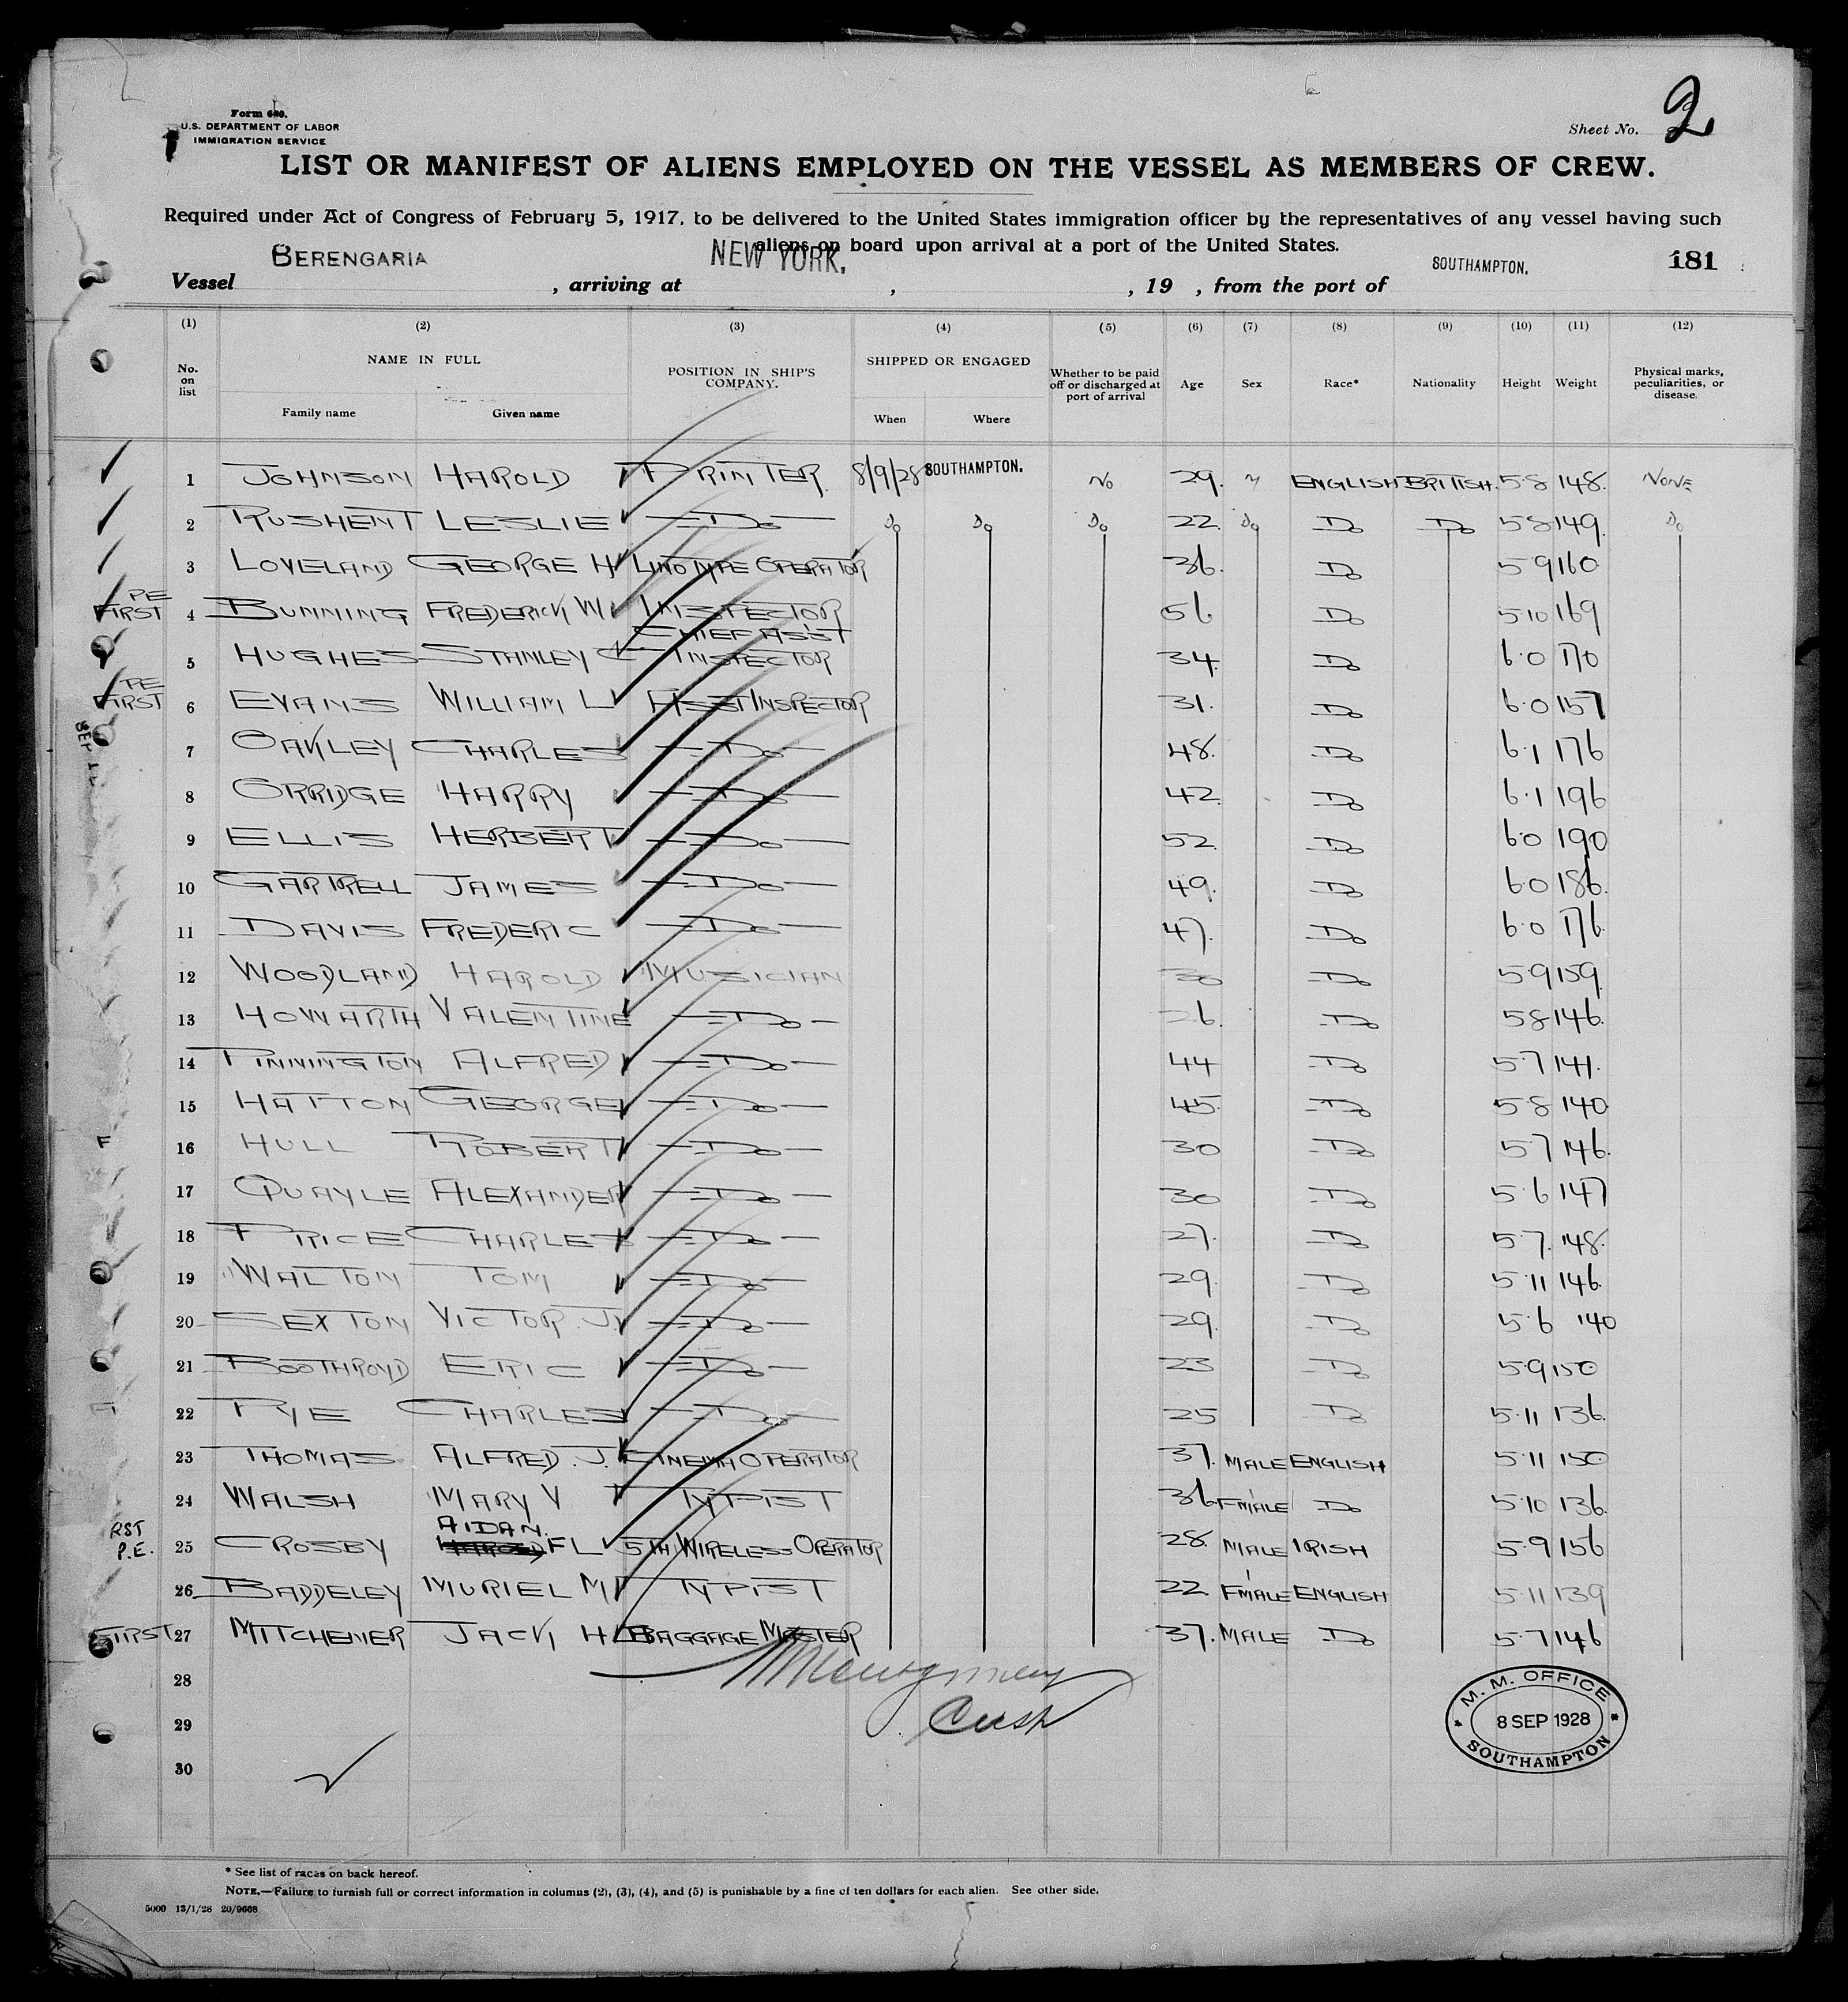 Form 680.
U.S. DEPARTMENT OF LABOR
IMMIGRATION SERVICE
Sheet No. 2
LIST OR MANIFEST OF ALIENS EMPLOYED ON THE VESSEL AS MEMBERS OF CREW.
Required under Act of Congress of February 5, 1917, to be delivered to the United States immigration officer by the representatives of any vessel having such
aliens on board upon arrival at a port of the United States.
Vessel BERENGARIA , arriving at NEW YORK. , , 19 , from the port of SOUTHAMPTON. 181
(1) (2) (3) (4) (5) (6) (7) (8) (9) (10) (11) (12)
No. on list NAME IN FULL Family name Given name POSITION IN SHIP'S COMPANY. SHIPPED OR ENGAGED When Where Whether to be paid off or discharged at port of arrival Age Sex Race* Nationality Height Weight Physical marks, peculiarities, or disease
1 JOHNSON HAROLD PRINTER 8/9/28 SOUTHAMPTON. NO 29. M ENGLISH BRITISH. 5·8 148. NONE
2 RUSHENT LESLIE - Do - Do Do Do 22. Do Do Do 5·8 149. Do
3 LOVELAND GEORGE H LINOTYPE OPERATOR 36. Do 5·9 160
PE FIRST 4 BUNNING FREDERICK W INSPECTOR 56 Do 5·10 169
5 HUGHES STANLEY C CHIEF ASST INSPECTOR 34. Do 6·0 170
PE FIRST 6 EVANS WILLIAM L ASST INSPECTOR 31. Do 6·0 157
7 OAKLEY CHARLES - Do - 48. Do 6·1 176
8 ORRIDGE HARRY - Do - 42. Do 6·1 196
9 ELLIS HERBERT - Do - 52. Do 6·0 190
10 GARTRELL JAMES - Do - 49. Do 6·0 186.
11 DAVIS FREDERIC - Do - 47. Do 6·0 176.
12 WOODLAND HAROLD MUSICIAN 30 Do 5·9 159.
13 HOWARTH VALENTINE - Do - 26. Do 5·8 146.
14 PINNINGTON ALFRED - Do - 44 Do 5·7 141.
15 HATTON GEORGE - Do - 45. Do 5·8 140
F 16 HULL ROBERT - Do - 30 Do 5·7 146.
17 QUAYLE ALEXANDER - Do - 30 Do 5·6 147
18 PRICE CHARLES - Do - 27. Do 5·7. 148.
19 WALTON TOM - Do - 29. Do 5·11 146.
20 SEXTON VICTOR. J. - Do - 29. Do 5·6 140
21 BOOTHROYD ERIC - Do - 23 Do 5·9 150
22 PYE CHARLES - Do - 25 Do 5·11 136.
23 THOMAS ALFRED. J. CINEMA OPERATOR 37. MALE ENGLISH 5·11 150
24 WALSH MARY V TYPIST 36 FMALE Do 5·10 136.
RST P.E. 25 CROSBY AIDAN. FL 5TH WIRELESS OPERATOR 28. MALE IRISH 5·9 156
26 BADDELEY MURIEL M TYPIST 22. FMALE ENGLISH 5·11 139
FIRST 27 MITCHENER JACK H L BAGGAGE MASTER 37. MALE Do 5·7 146
28
29
30
Montgomery
M. M. OFFICE
8 SEP 1928
SOUTHAMPTON
* See list of races on back hereof.
NOTE.—Failure to furnish full or correct information in columns (2), (3), (4), and (5) is punishable by a fine of ten dollars for each alien. See other side.
5000 13/1/28 20/9668